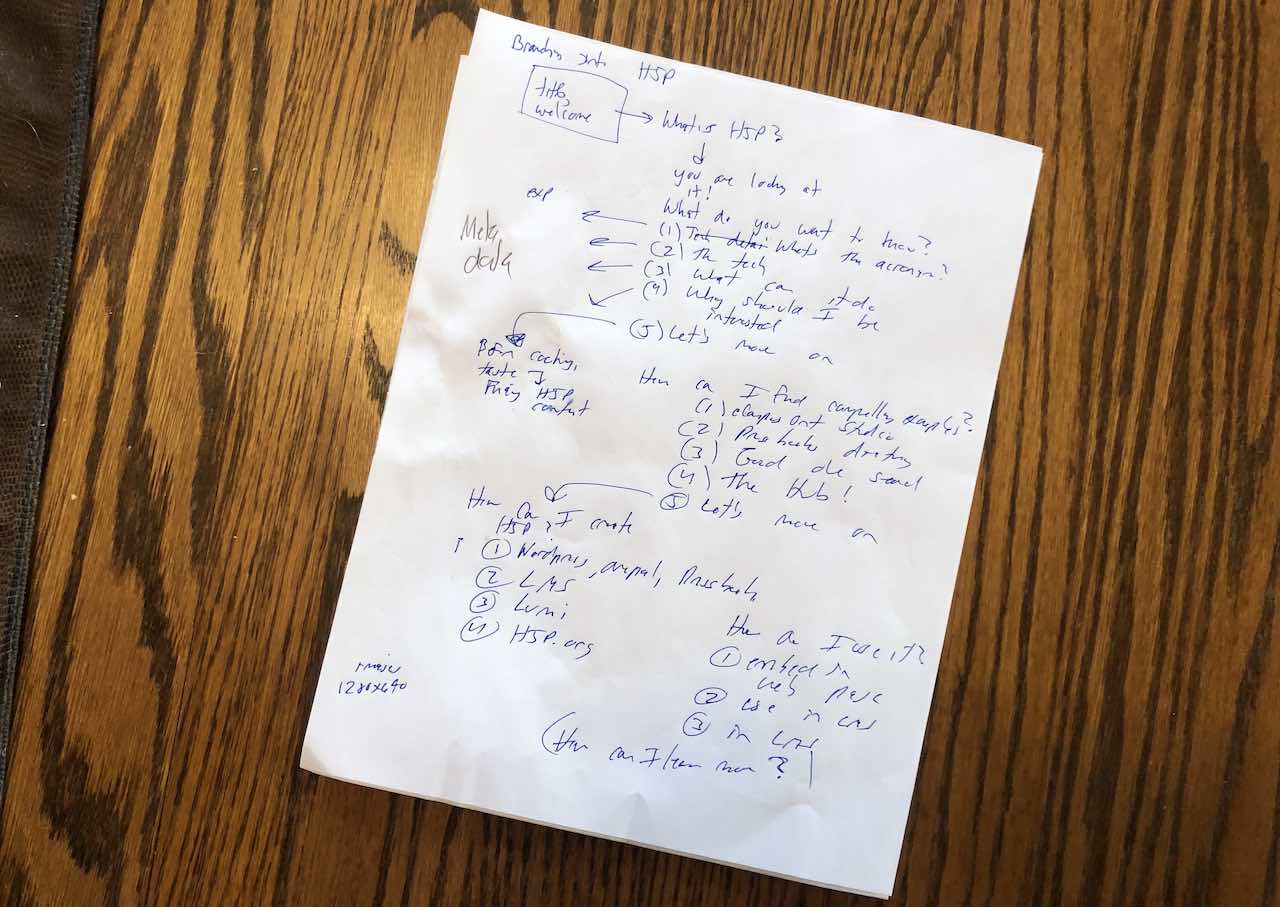 Branching into H5P
title
welcome
What is H5P?
you are looking at
it!
What do you want to know?
(1) Tech detail Whats the acronym?
(2) The tech
(3) What can it do
(4) Why should I be
interested
(5) Let's move on
exp
Meta
data
H5P
content
How can I find compelling examples?
(1) eCampus Ont Studio
(2) Pressbooks directory
(3) Good ole search
(4) The Hub!
(5) Let's move on
How can I create
H5P?
(1) Wordpress, Drupal, Pressbooks
(2) LMS
(3) Lumi
(4) H5P.org
How can I use it?
(1) embed in
web page
(2) use in
(3) in LMS
How can I learn more?
images
1280x640